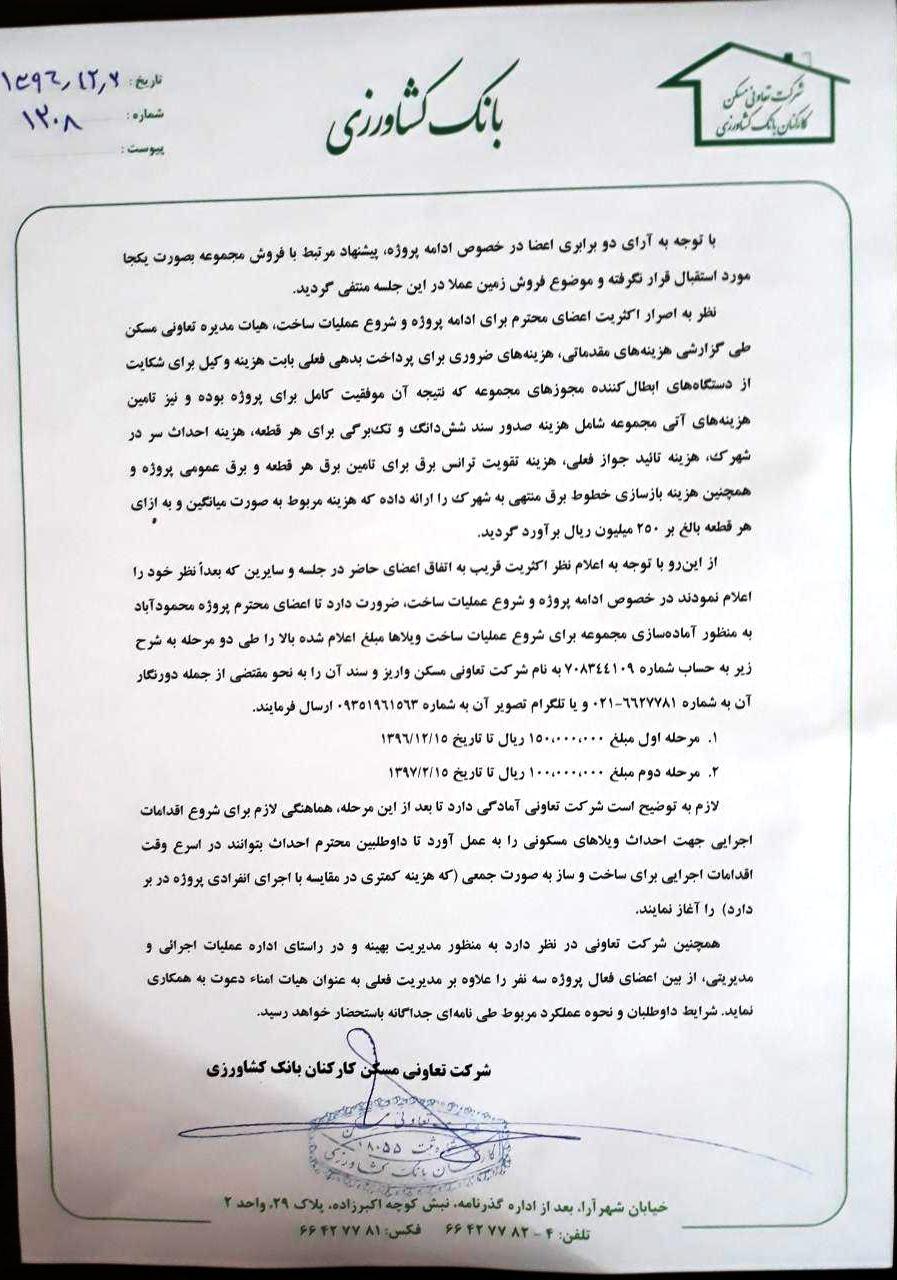 شرکت تعاونی مسکن
کارکنان بانک کشاورزی
بانک کشاورزی
تاریخ : ۱۳۹۶٫۱۲٫۲
شماره : ۱۳۰۸
پیوست :
با توجه به آرای دو برابری اعضا در خصوص ادامه پروژه، پیشنهاد مرتبط با فروش مجموعه بصورت یکجا
مورد استقبال قرار نگرفته و موضوع فروش زمین عملا در این جلسه منتفی گردید.
نظر به اصرار اکثریت اعضای محترم برای ادامه پروژه و شروع عملیات ساخت، هیات مدیره تعاونی مسکن
طی گزارشی هزینه‌های مقدماتی، هزینه‌های ضروری برای پرداخت بدهی فعلی بابت هزینه وکیل برای شکایت
از دستگاه‌های ابطال‌کننده مجوزهای مجموعه که نتیجه آن موفقیت کامل برای پروژه بوده و نیز تامین
هزینه‌های آتی مجموعه شامل هزینه صدور سند شش‌دانگ و تک‌برگی برای هر قطعه، هزینه احداث سر در
شهرک، هزینه تائید جواز فعلی، هزینه تقویت ترانس برق برای تامین برق هر قطعه و برق عمومی پروژه و
همچنین هزینه بازسازی خطوط برق منتهی به شهرک را ارائه داده که هزینه مربوط به صورت میانگین و به ازای
هر قطعه بالغ بر ۲۵۰ میلیون ریال برآورد گردید.
از این‌رو با توجه به اعلام نظر اکثریت قریب به اتفاق اعضای حاضر در جلسه و سایرین که بعداً نظر خود را
اعلام نمودند در خصوص ادامه پروژه و شروع عملیات ساخت، ضرورت دارد تا اعضای محترم پروژه محمودآباد
به منظور آماده‌سازی مجموعه برای شروع عملیات ساخت ویلاها مبلغ اعلام شده بالا را طی دو مرحله به شرح
زیر به حساب شماره ۷۰۸۳۴۴۱۰۹ به نام شرکت تعاونی مسکن واریز و سند آن را به نحو مقتضی از جمله دورنگار
آن به شماره ۶۶۲۷۷۸۱-۰۲۱ و یا تلگرام تصویر آن به شماره ۰۹۳۵۱۹۶۱۵۶۳ ارسال فرمایند.
۱. مرحله اول مبلغ ۱۵۰،۰۰۰،۰۰۰ ریال تا تاریخ ۱۳۹۶/۱۲/۱۵
۲. مرحله دوم مبلغ ۱۰۰،۰۰۰،۰۰۰ ریال تا تاریخ ۱۳۹۷/۲/۱۵
لازم به توضیح است شرکت تعاونی آمادگی دارد تا بعد از این مرحله، هماهنگی لازم برای شروع اقدامات
اجرایی جهت احداث ویلاهای مسکونی را به عمل آورد تا داوطلبین محترم احداث بتوانند در اسرع وقت
اقدامات اجرایی برای ساخت و ساز به صورت جمعی (که هزینه کمتری در مقایسه با اجرای انفرادی پروژه در بر
دارد) را آغاز نمایند.
همچنین شرکت تعاونی در نظر دارد به منظور مدیریت بهینه و در راستای اداره عملیات اجرائی و
مدیریتی، از بین اعضای فعال پروژه سه نفر را علاوه بر مدیریت فعلی به عنوان هیات امناء دعوت به همکاری
نماید. شرایط داوطلبان و نحوه عملکرد مربوط طی نامه‌ای جداگانه باستحضار خواهد رسید.
شرکت تعاونی مسکن کارکنان بانک کشاورزی
تعاونی مسکن
ثبت ۱۸۰۵۵
کارکنان بانک کشاورزی
خیابان شهرآرا، بعد از اداره گذرنامه، نبش کوچه اکبرزاده، پلاک ۲۹، واحد ۲
تلفن: ۴ - ۸۲ ۷۷ ۴۲ ۶۶ فکس: ۸۱ ۷۷ ۴۲ ۶۶